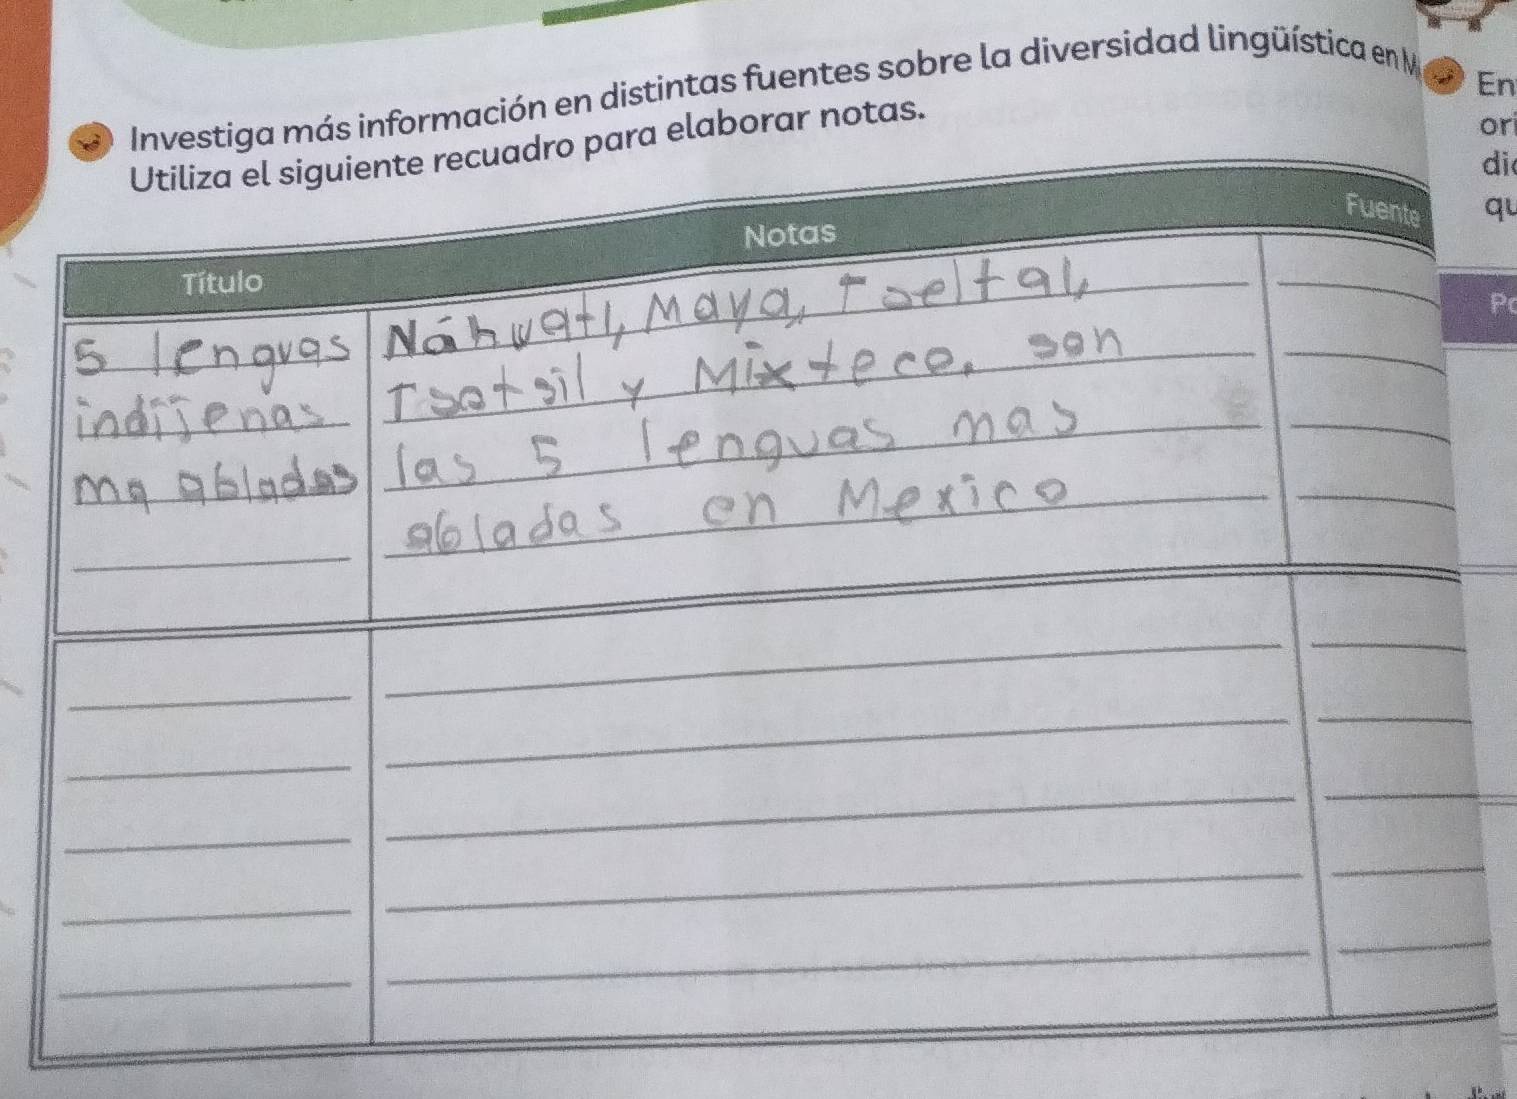 Investiga más información en distintas fuentes sobre la diversidad lingüística en M
Utiliza el siguiente recuadro para elaborar notas.
Título
Notas
Fuente
5 lenguas
indijenas
ma abladas
Náhuatl, Maya, Tseltal,
Tsotsil y Mixtece. son
las 5 lenguas mas
abladas en Mexico
En
ori
di
qu
Po